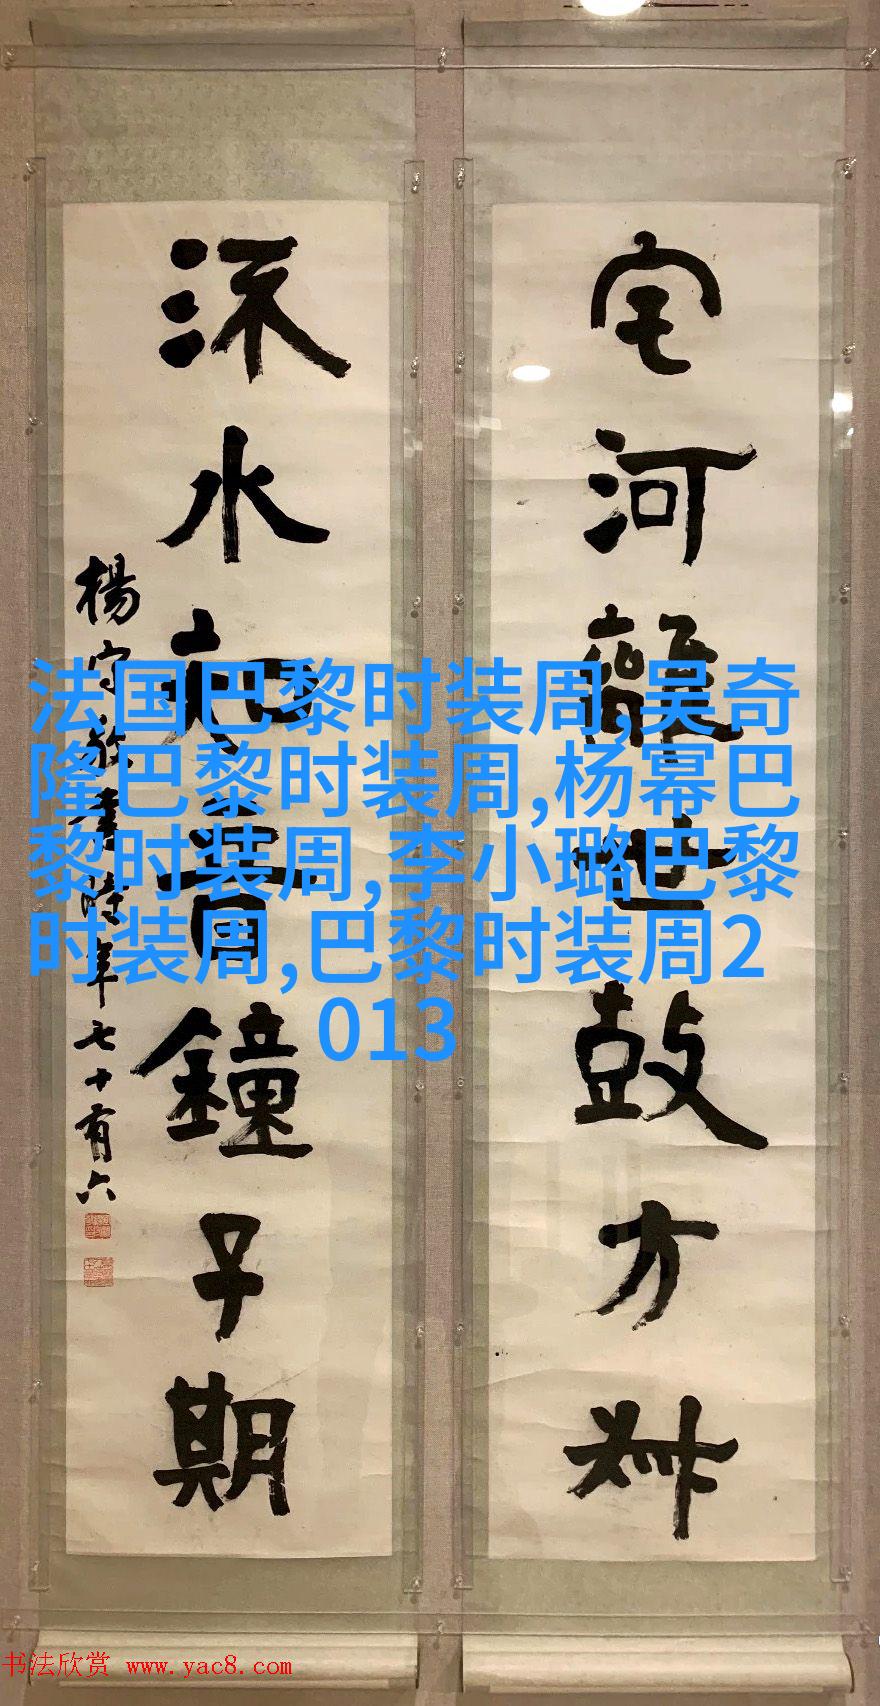 宅河世鼓方叔
水音鐘子期
楊守敬書時年七十有六
法国巴黎时装周,吴奇
隆巴黎时装周,杨幂巴
黎时装周,李小璐巴黎
时装周,巴黎时装周2
013
书法欣赏 www.yac8.com